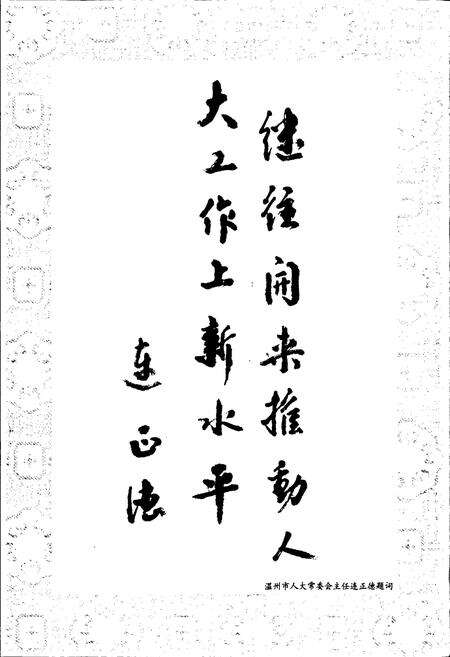 继往開来推動人
大工作上新水平
连正德
温州市人大常委会主任连正德题词